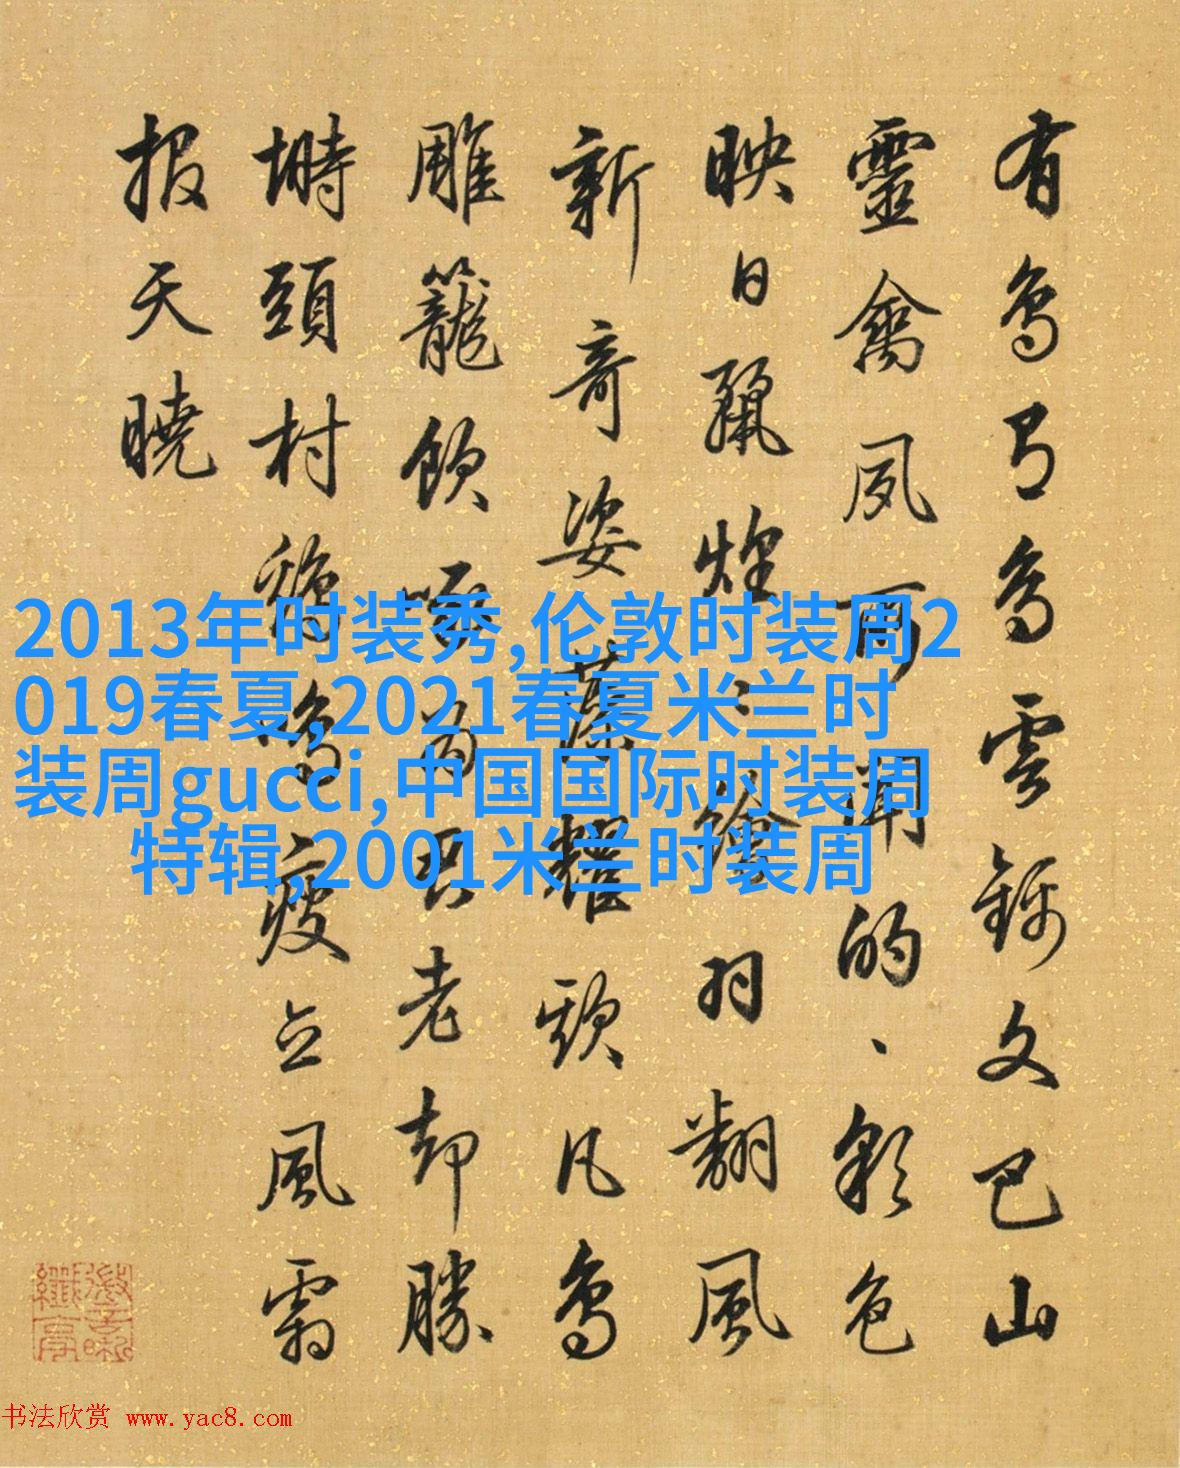 有鳥有鳥雲錦文巴山
靈禽夙所聞的、彩色
映日麗煌、繪羽翻風
新奇姿藻耀頭凡鳥
雕籠飲啄為君老却勝
塒頭村鷄鳴瘦立風霜
報天曉
2013年时装秀,伦敦时装周2
019春夏,2021春夏米兰时
装周gucci,中国国际时装周
特辑,2001米兰时装周
书法欣赏 www.yac8.com